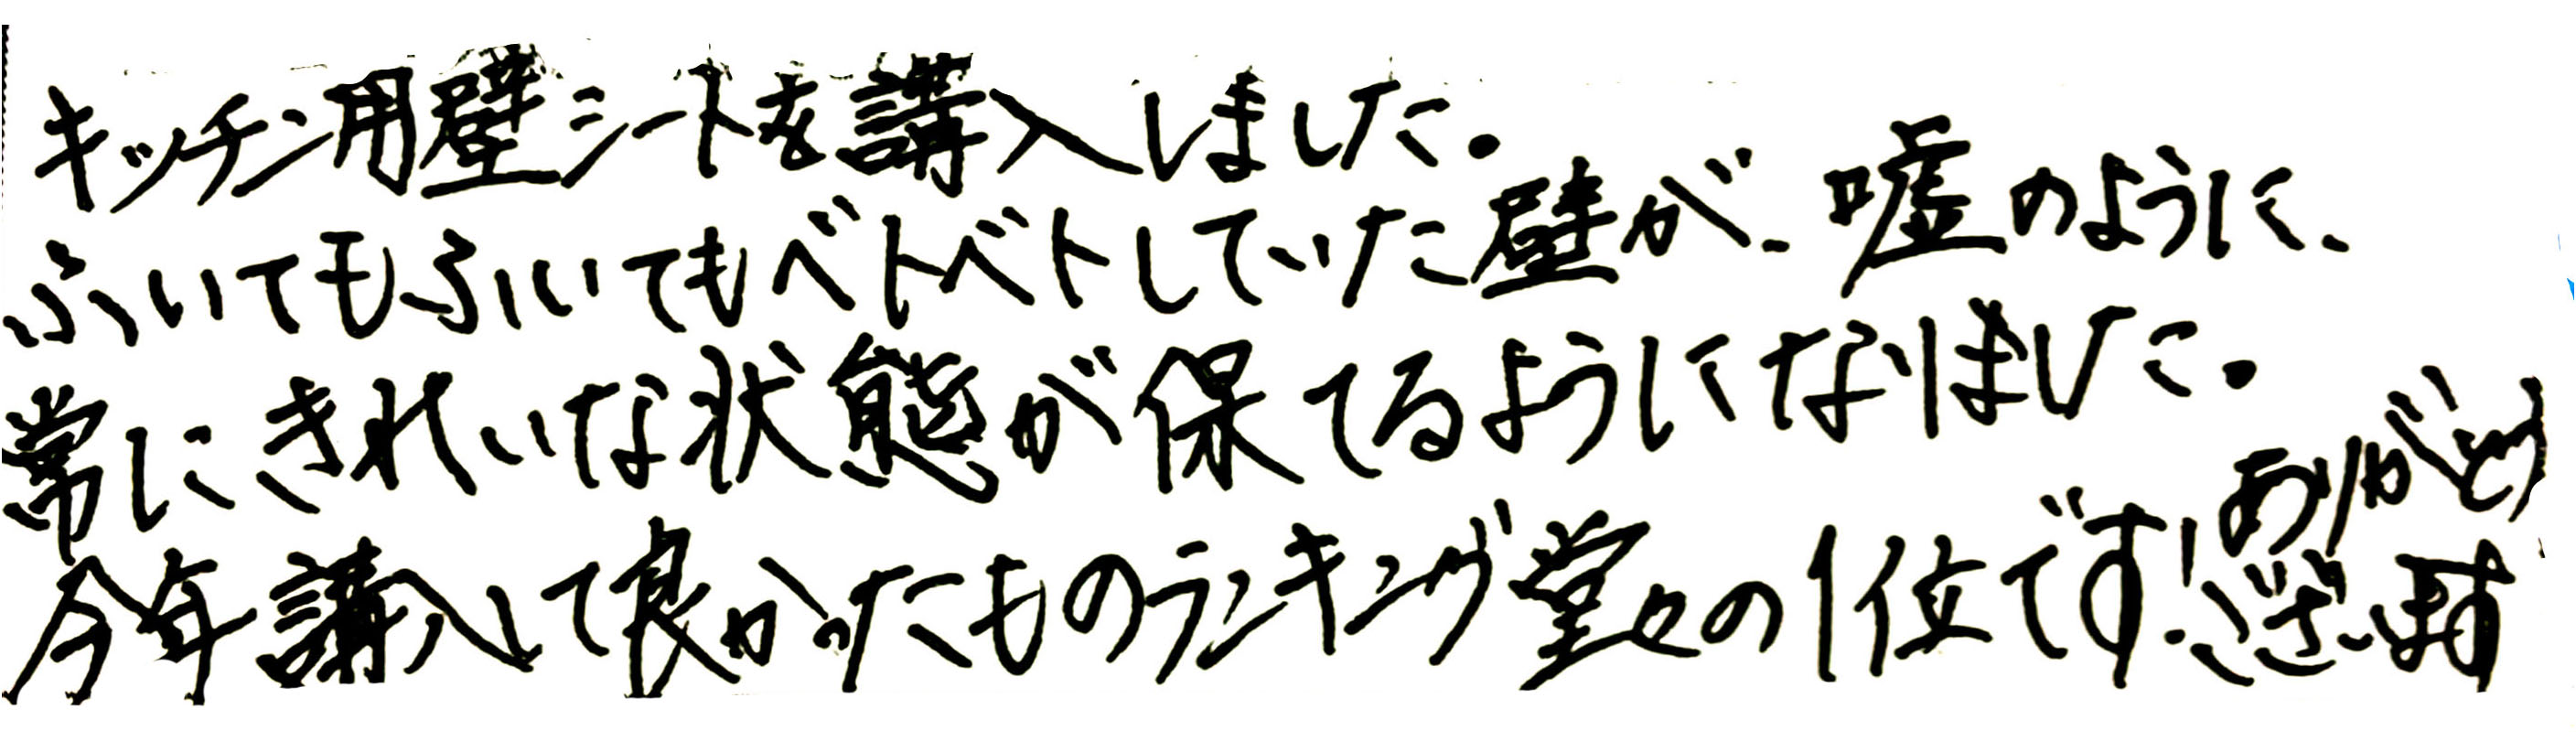 キッチン用壁シートを講入しました。
ふいてもふいてもベトベトしていた壁が、嘘のように、
常にきれいな状態が保てるようになりました。
今年講入して良かったものランキング堂々の1位です!
ありがとう
ございます